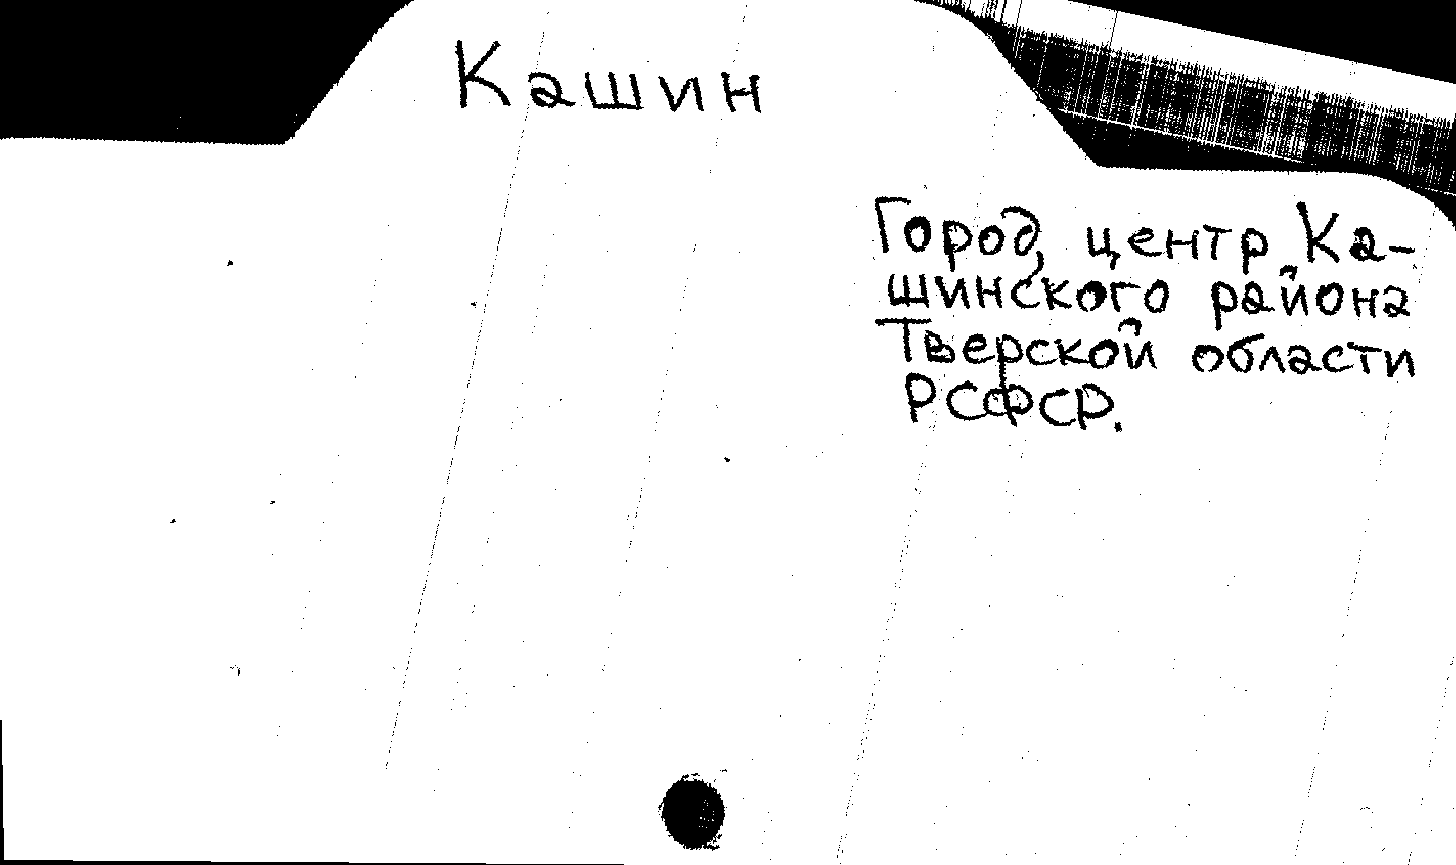 Кашин
Город, центр Ка-
шинского района
Тверской области
РСФСР.